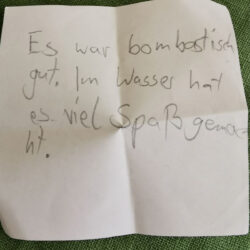 Es war bombastisch
gut. Im Wasser hat
es viel Spaß gemac
ht.